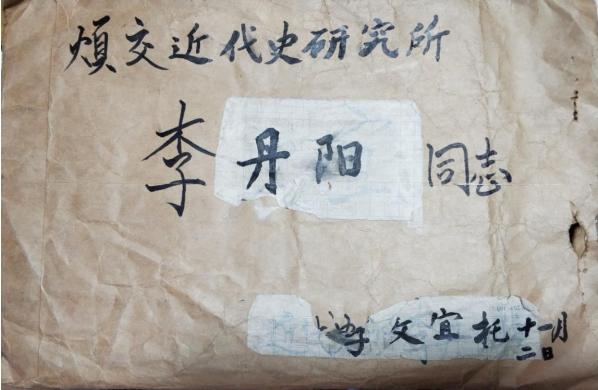 煩交近代史研究所
李丹阳同志
文宜托十一月
二日